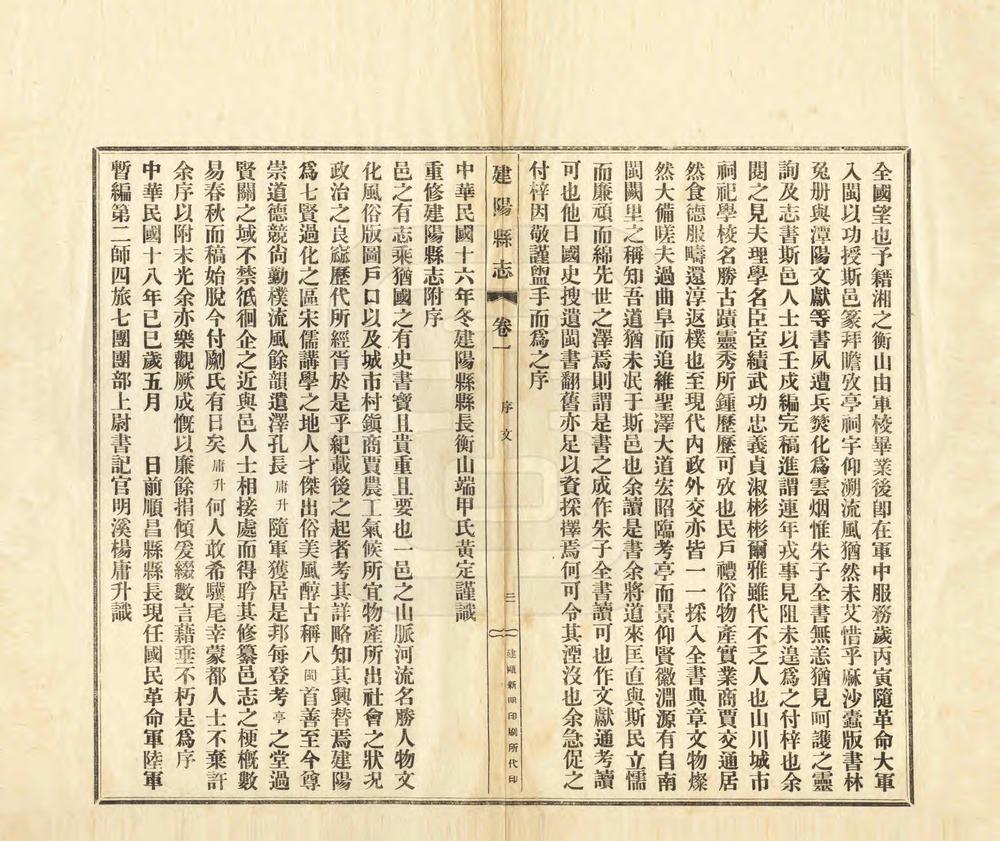 全國望也予籍湘之衡山由軍校畢業後卽在軍中服務歲丙寅隨革命大軍
入閩以功授斯邑篆拜瞻攷亭祠宇仰溯流風猶然未艾惜乎麻沙蠧版書林
兔册與潭陽文獻等書夙遭兵燹化爲雲烟惟朱子全書無恙猶見呵護之靈
詢及志書斯邑人士以壬戌編完稿進謂連年戎事見阻未遑爲之付梓也余
閱之見夫理學名臣宦績武功忠義貞淑彬彬爾雅雖代不乏人也山川城市
祠祀學校名勝古蹟靈秀所鍾歷歷可攷也民戶禮俗物產實業商賈交通居
然食德服疇還淳返樸也至現代內政外交亦皆一一採入全書典章文物燦
然大備嗟夫過曲阜而追維聖澤大道宏昭臨考亭而景仰賢徽淵源有自南
閩闕里之稱知吾道猶未泯于斯邑也余讀是書余將道來匡直與斯民立懦
而廉頑而綿先世之澤焉則謂是書之成作朱子全書讀可也作文獻通考讀
可也他日國史搜遺閩書翻舊亦足以資採擇焉何可令其湮沒也余急促之
付梓因敬謹盥手而爲之序
建陽縣志 卷一 序文 三 建甌新明印刷所代印
中華民國十六年冬建陽縣縣長衡山端甲氏黃定謹識
重修建陽縣志附序
邑之有志乘猶國之有史書寶且貴重且要也一邑之山脈河流名勝人物文
化風俗版圖戶口以及城市村鎭商賈農工氣候所宜物產所出社會之狀况
政治之良窳歷代所經胥於是乎紀載後之起者考其詳略知其興替焉建陽
爲七賢過化之區宋儒講學之地人才傑出俗美風醇古稱八閩首善至今尊
崇道德競尙勤樸流風餘韻遺澤孔長庸升隨軍獲居是邦每登考亭之堂過
賢關之域不禁低徊企之近與邑人士相接處而得聆其修纂邑志之梗槪數
易春秋而稿始脫今付劂氏有日矣庸升何人敢希驥尾幸蒙都人士不棄許
余序以附末光余亦樂觀厥成慨以廉餘捐傾爰綴數言藉垂不朽是爲序
中華民國十八年己巳歲五月　日前順昌縣縣長現任國民革命軍陸軍
暫編第二師四旅七團團部上尉書記官明溪楊庸升識